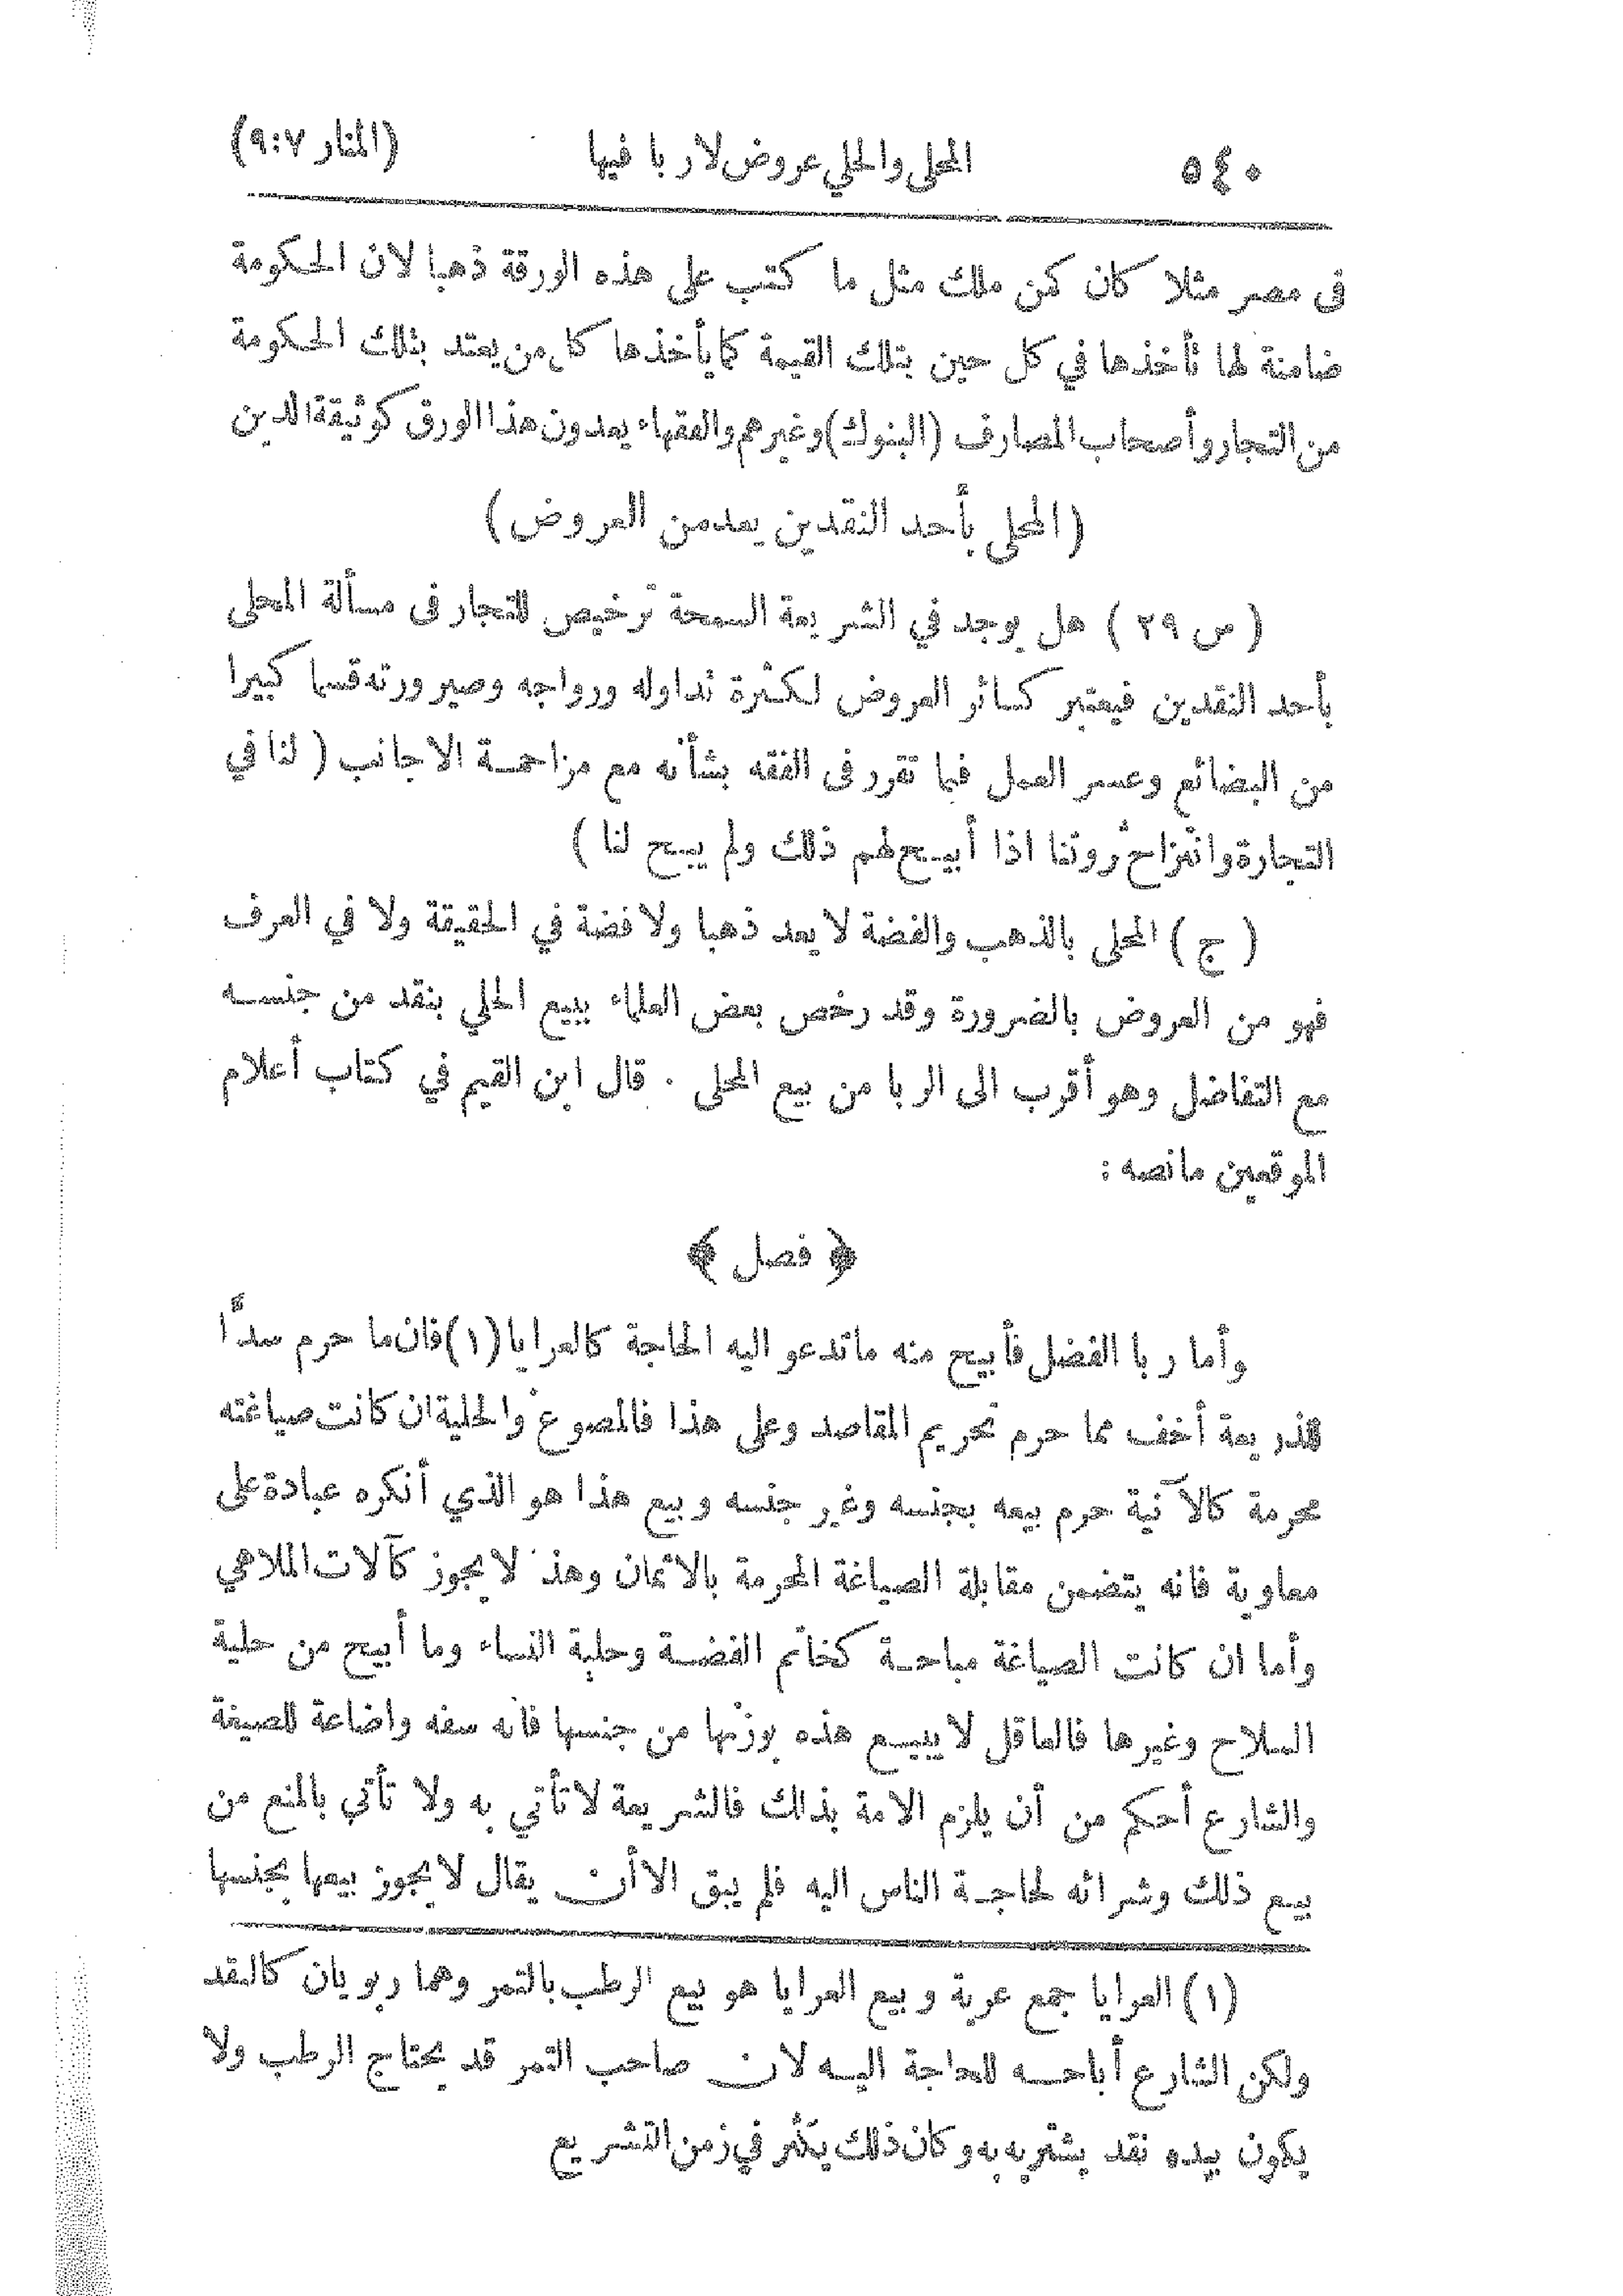 ٥٤٠ المحلى والحلي عروض لا ربا فيها (المنار ٩:٧)
فى مصر مثلا كان كمن ملك مثل ما كتب على هذه الورقة ذهبا لان الحكومة
ضامنة لها تأخذها في كل حين بتلك القيمة كما يأخذها كل من يعتد بتلك الحكومة
من التجار وأصحاب المصارف (البنوك) وغيرهم والفقهاء يعدون هذا الورق كوثيقة الدين
(المحلى بأحد النقدين يعد من العروض)
(س ٢٩) هل يوجد في الشريعة السمحة ترخيص للتجار فى مسألة المحلى
بأحد النقدين فيعتبر كسائر العروض لكثرة تداوله ورواجه وصيرورته قسما كبيرا
من البضائع وعسر العمل فيما تقرر فى الفقه بشأنه مع مزاحمة الاجانب (لنا في
التجارة وانتزاح ثروتنا اذا أبيح لهم ذلك ولم يبح لنا)
(ج) المحلى بالذهب والفضة لا يعد ذهبا ولا فضة في الحقيقة ولا في العرف
فهو من العروض بالضرورة وقد رخص بعض العلماء ببيع الحلي بنقد من جنسه
مع التفاضل وهو أقرب الى الربا من بيع المحلى . قال ابن القيم في كتاب أعلام
الموقعين ما نصه :
﴿ فصل ﴾
وأما ربا الفضل فأبيح منه ما تدعو اليه الحاجة كالعرايا (١) فان ما حرم سدًّا
للذريعة أخف مما حرم تحريم المقاصد وعلى هذا فالمصوغ والحلية ان كانت صياغته
محرمة كالآنية حرم بيعه بجنسه وغير جنسه وبيع هذا هو الذي أنكره عبادة على
معاوية فانه يتضمن مقابلة الصياغة المحرمة بالاثمان وهذا لا يجوز كآلات الملاهي
وأما ان كانت الصياغة مباحة كخاتم الفضة وحلية النساء وما أبيح من حلية
السلاح وغيرها فالعاقل لا يبيع هذه بوزنها من جنسها فانه سفه واضاعة للصيغة
والشارع أحكم من أن يلزم الامة بذلك فالشريعة لا تأتي به ولا تأتي بالمنع من
بيع ذلك وشرائه لحاجة الناس اليه فلم يبق الا أن يقال لا يجوز بيعها بجنسها
(١) العرايا جمع عرية وبيع العرايا هو بيع الرطب بالتمر وهما ربويان كالنقد
ولكن الشارع أباحه للحاجة اليه لان صاحب التمر قد يحتاج الرطب ولا
يكون بيده نقد يشتريه به وكان ذلك يكثر في زمن التشريع